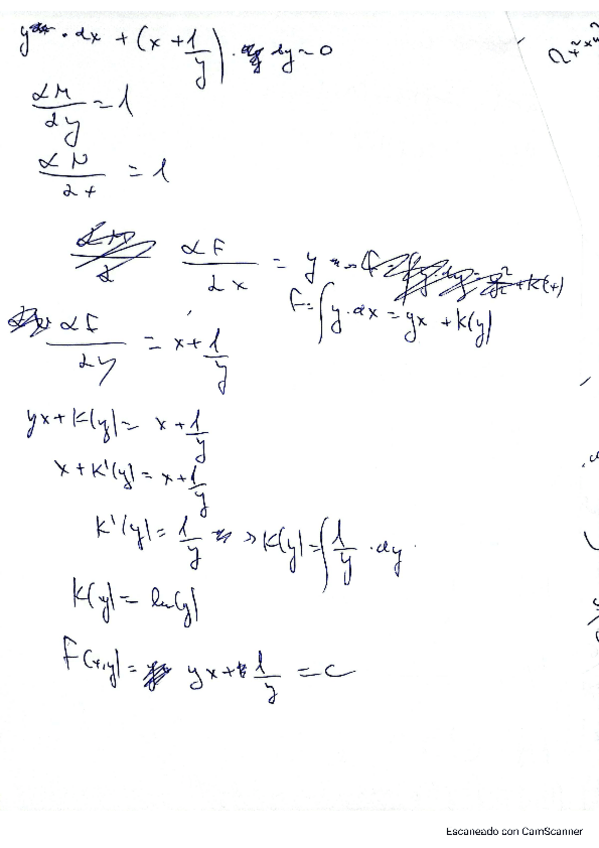 y · dx + (x + 1/y) · dy = 0
αM/2y = 1
αN/2x = 1
αF/2x = y → F = ∫ y · dx = yx + K(y)
αF/2y = x + 1/y
yx + K(y) = x + 1/y
x + K'(y) = x + 1/y
K'(y) = 1/y → K(y) = ∫ 1/y · dy
K(y) = ln(y)
F(x,y) = yx + 1/y = C
Escaneado con CamScanner